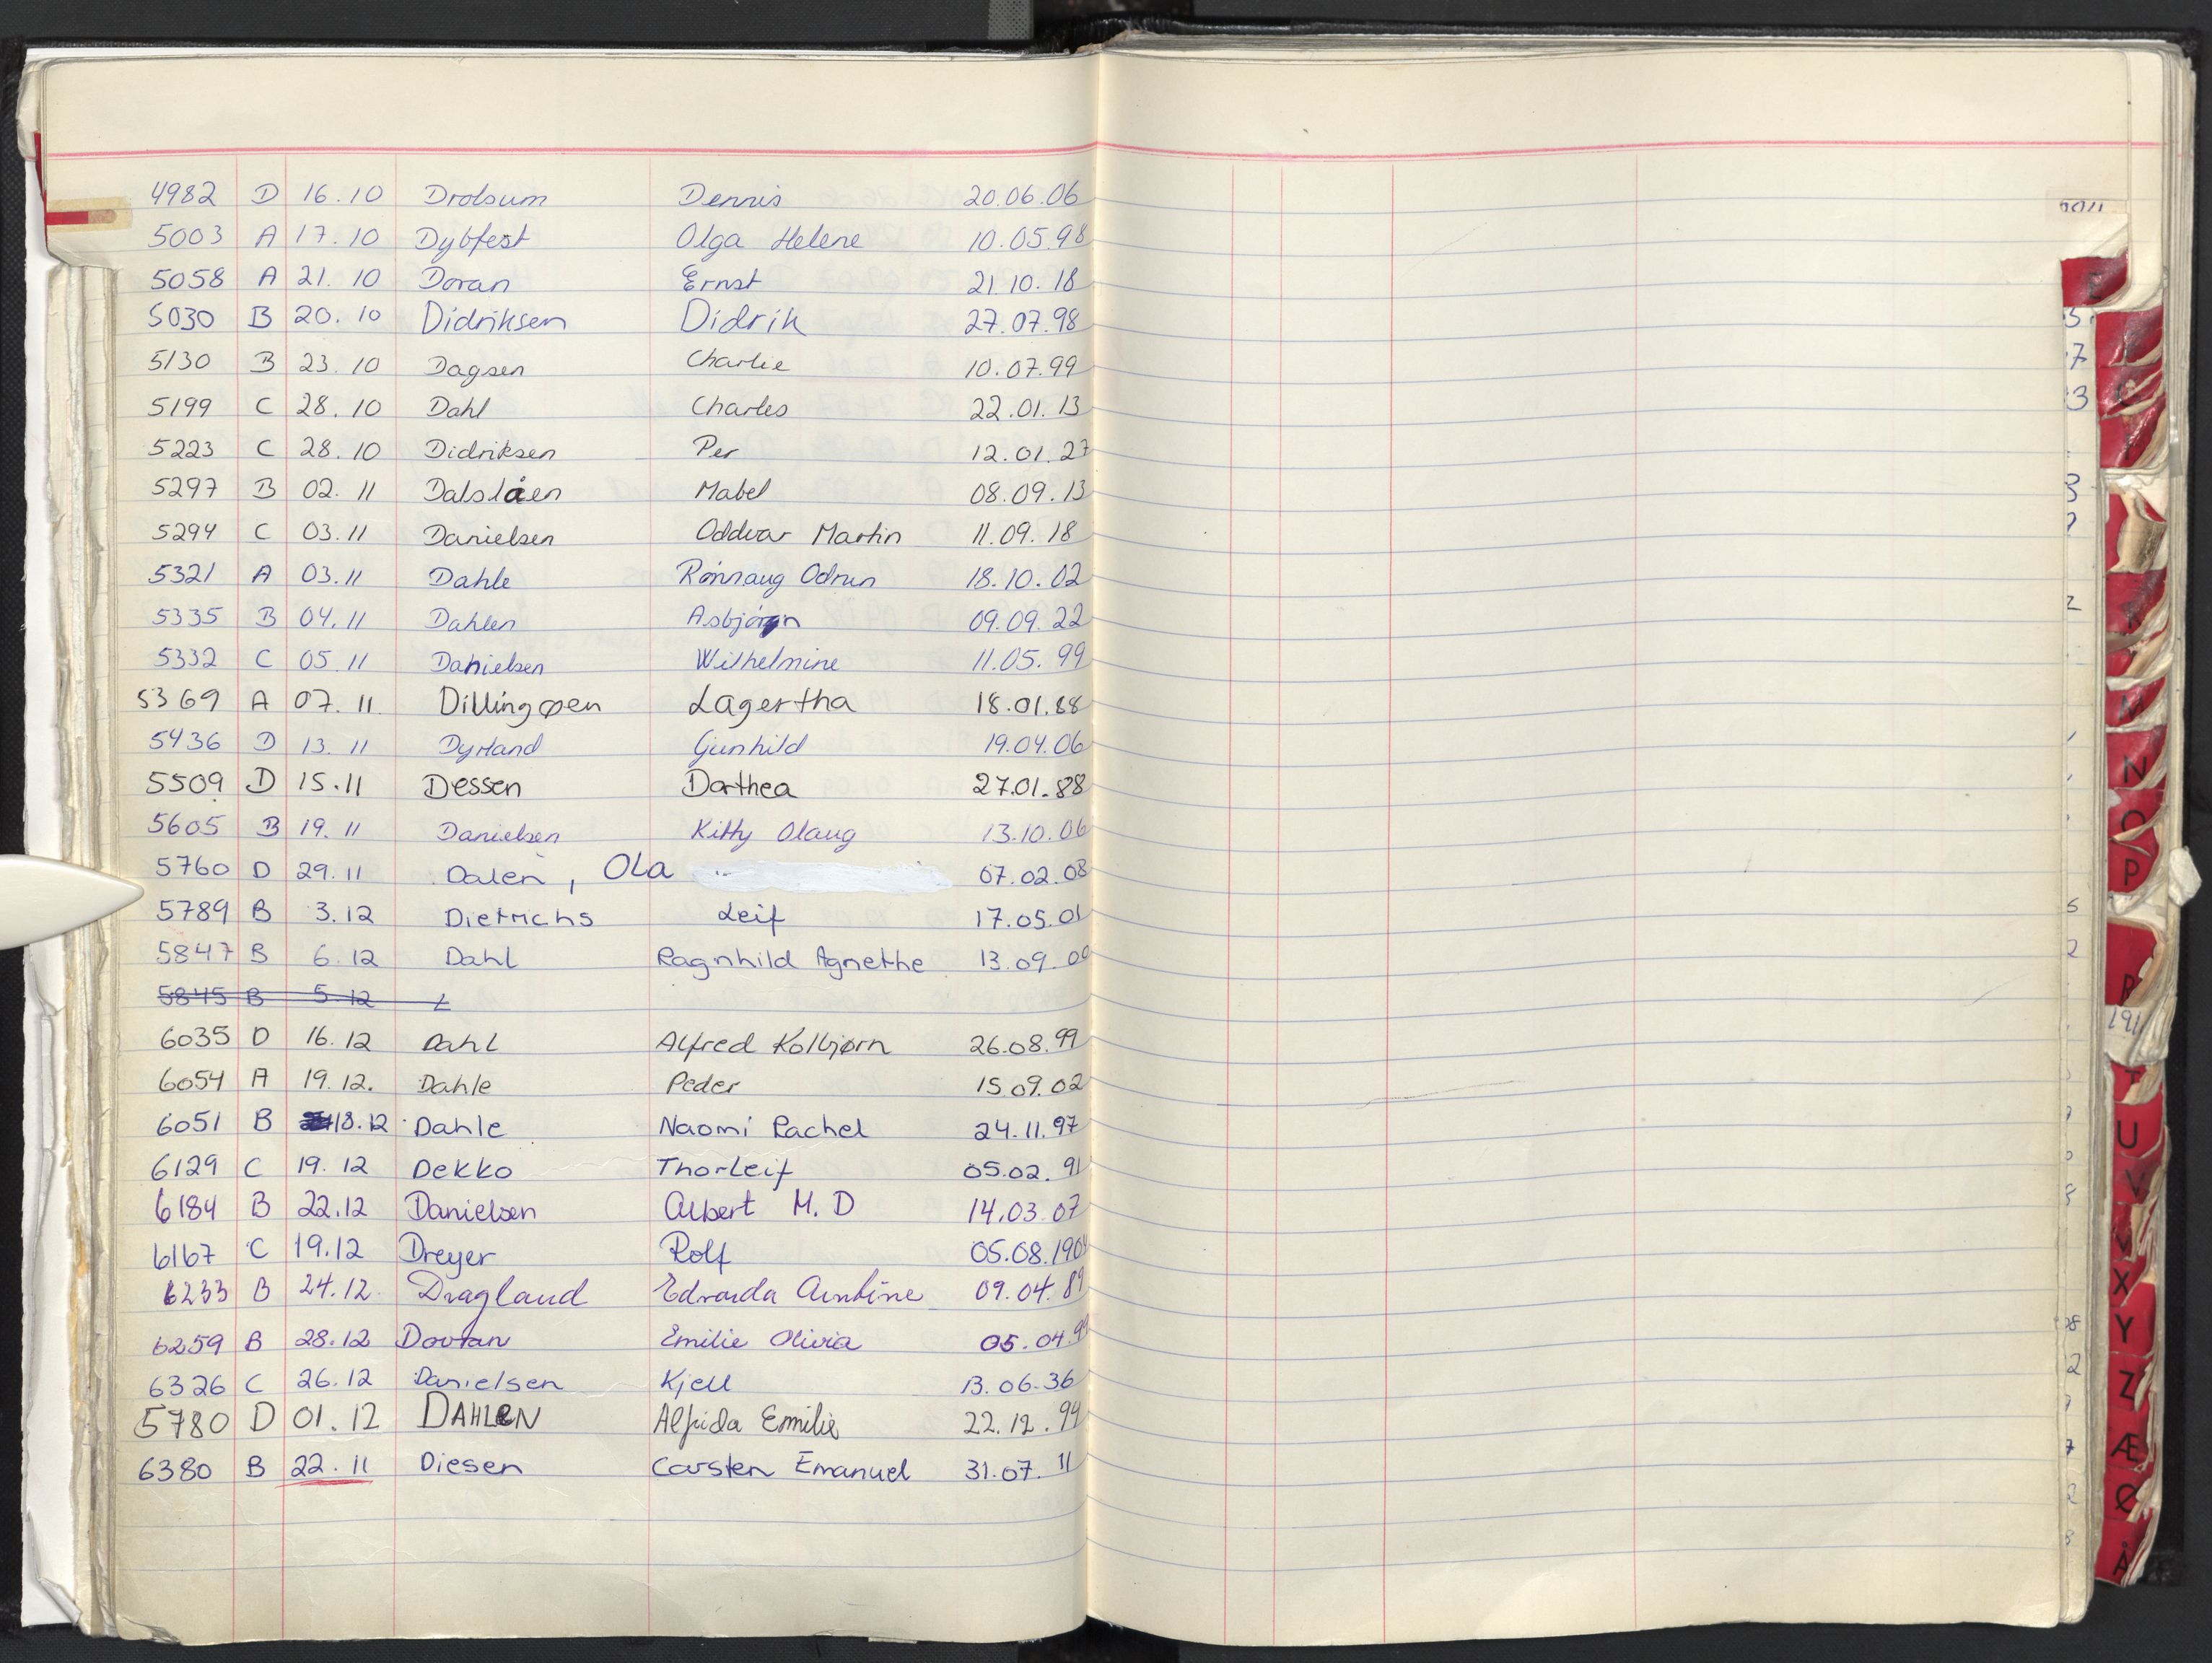 4982 D 16.10 Drolsum Dennis 20.06.06
5003 A 17.10 Dybfest Olga Helene 10.05.98
5058 A 21.10 Doran Ernst 21.10.18
5030 B 20.10 Didriksen Didrik 27.07.98
5130 B 23.10 Dagsen Charlie 10.07.99
5199 C 28.10 Dahl Charles 22.01.13
5223 C 28.10 Didriksen Per 12.01.27
5297 B 02.11 Dalslåen Mabel 08.09.13
5294 C 03.11 Danielsen Oddvar Martin 11.09.18
5321 A 03.11 Dahle Rønnaug Odrun 18.10.02
5335 B 04.11 Dahlen Asbjørn 09.09.22
5332 C 05.11 Danielsen Wilhelmine 11.05.99
5369 A 07.11 Dillingøen Lagertha 18.01.88
5436 D 13.11 Dyrland Gunhild 19.04.06
5509 D 15.11 Dessen Dorthea 27.01.88
5605 B 19.11 Danielsen Kitty Olaug 13.10.06
5760 D 29.11 Dalen, Ola 07.02.08
5789 B 3.12 Dietrichs Leif 17.05.01
5847 B 6.12 Dahl Ragnhild Agnethe 13.09.00
5845 B 5.12
6035 D 16.12 Dahl Alfred Kolbjørn 26.08.99
6054 A 19.12. Dahle Peder 15.09.02
6051 B 18.12 Dahle Naomi Rachel 24.11.97
6129 C 19.12 Dekko Thorleif 05.02.91
6184 B 22.12 Danielsen Albert M.D 14.03.07
6167 C 19.12 Dreyer Rolf 05.08.1904
6233 B 24.12. Dragland Edvarda 09.04.89
6259 B 28.12 Dovran Emilie Olivia 05.04.99
6326 C 26.12 Danielsen Kjell 13.06.36
5780 D 01.12 DAHLeN Alfrida Emilie 22.12.94
6380 B 22.11 Diesen Carsten Emanuel 31.07.11
N
O
P
R
T
U
V
X
Y
Z
Æ
Ø
Å